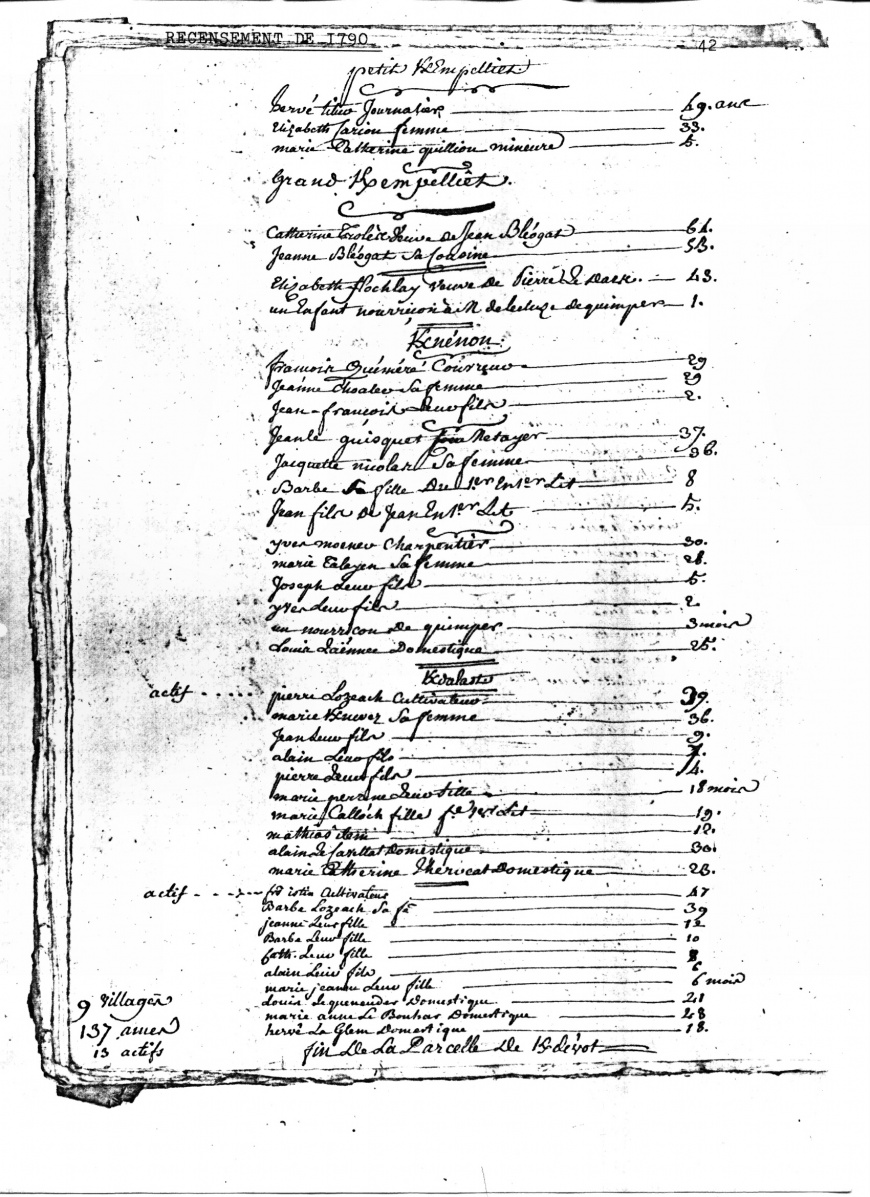 RECENSEMENT DE I790
42
petit Kempelliet
hervé Journalier 49. ans
Elizabeth Carion femme 33.
marie Catherine quillion mineure 5.
Grand Kempelliet.
Catherine veuve de Jean Bléogat 61.
Jeanne Bléogat Sa Cousine 53.
Elizabeth flochlay veuve de Pierre Le Daere. 43.
un Enfant nourriçon à M de lecluze de quimper 1.
Knénon
francois Quéméré Couvreur 29
Jeanne Choalec Sa femme 29
Jean-francois Leur fils 2.
Jean le guisquet Metayer 37.
Jacquette nicolas Sa femme 36.
Barbe Sa fille Du 1er En 1er Lit 8
Jean fils De Jean En 1er Lit 5.
yves moenner Charpentier 30.
marie Talayen Sa femme 28.
Joseph Leur fils 5
yves Leur fils 2
un nourricon de quimper 3 mois
Louis Laënnec Domestique 25.
Kvalast
actif pierre Lozeach Cultivateur 39.
marie Knevez Sa femme 36.
Jean Leur fils 9.
alain Leur fils 7.
pierre Leur fils 4.
marie perrine Leur fille 18 mois
marie Calloch fille 1er Lit 19.
mathias idem 12.
alain Le Domestique 30.
marie Catherine Domestique 23.
actif istin Cultivateur 47
Barbe Lozeach Sa fe 39
jeanne Leur fille 12
Barbe Leur fille 10
Cath. Leur fille 8
alain Leur fils 6
marie jeanne Leur fille 6 mois
Louis Lequeneuder Domestique 21
marie anne Le Bouhar Domestique 28
hervé Le Glem Domestique 18.
9 villages
137 ames
13 actifs
fin De La Parcelle De Kdévot